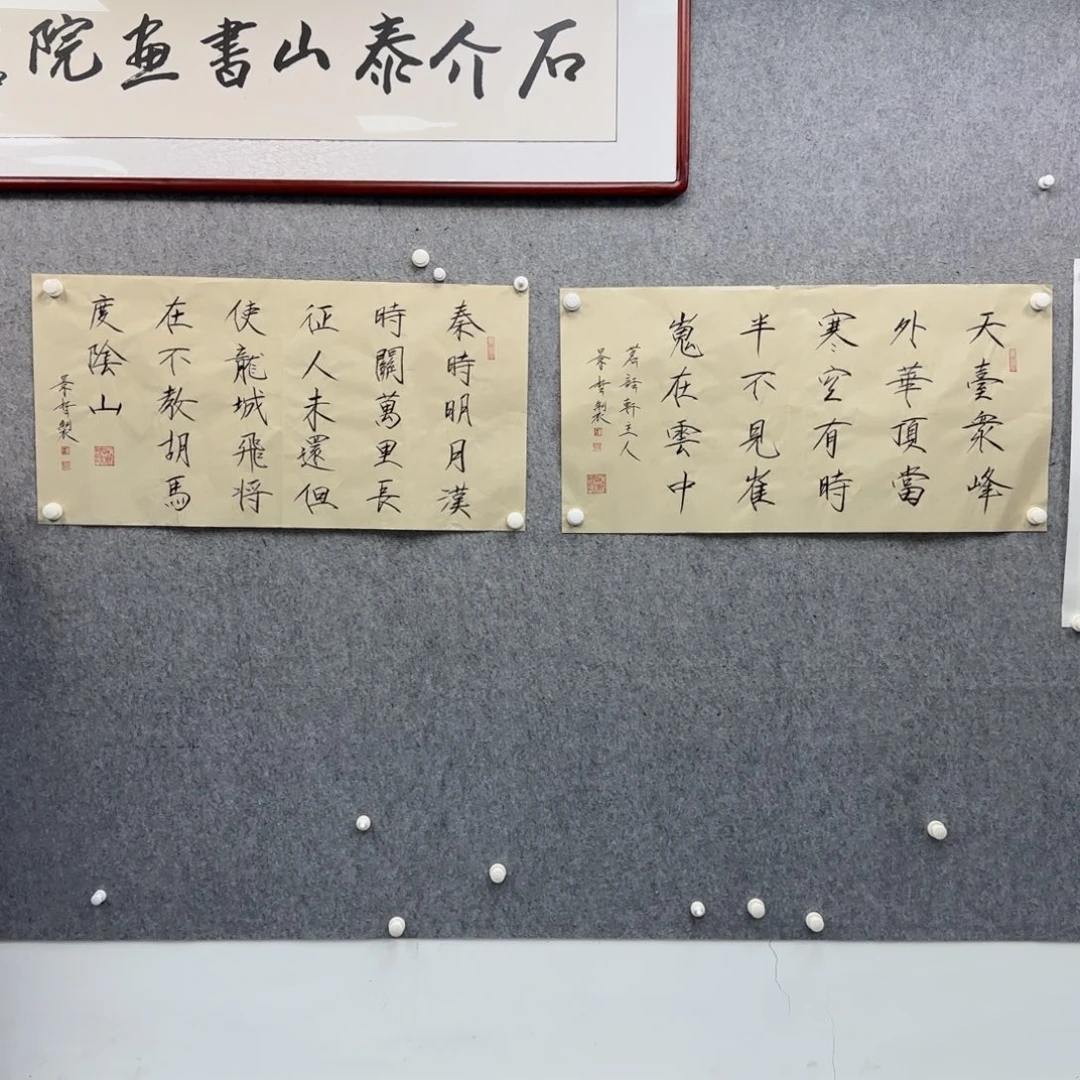 石介泰山書画院
天臺衆峰
外華頂當
寒空有時
半不見崔
嵬在雲中
軒主人
製
秦時明月漢
時關萬里長
征人未還但
使龍城飛将
在不教胡馬
度陰山
製